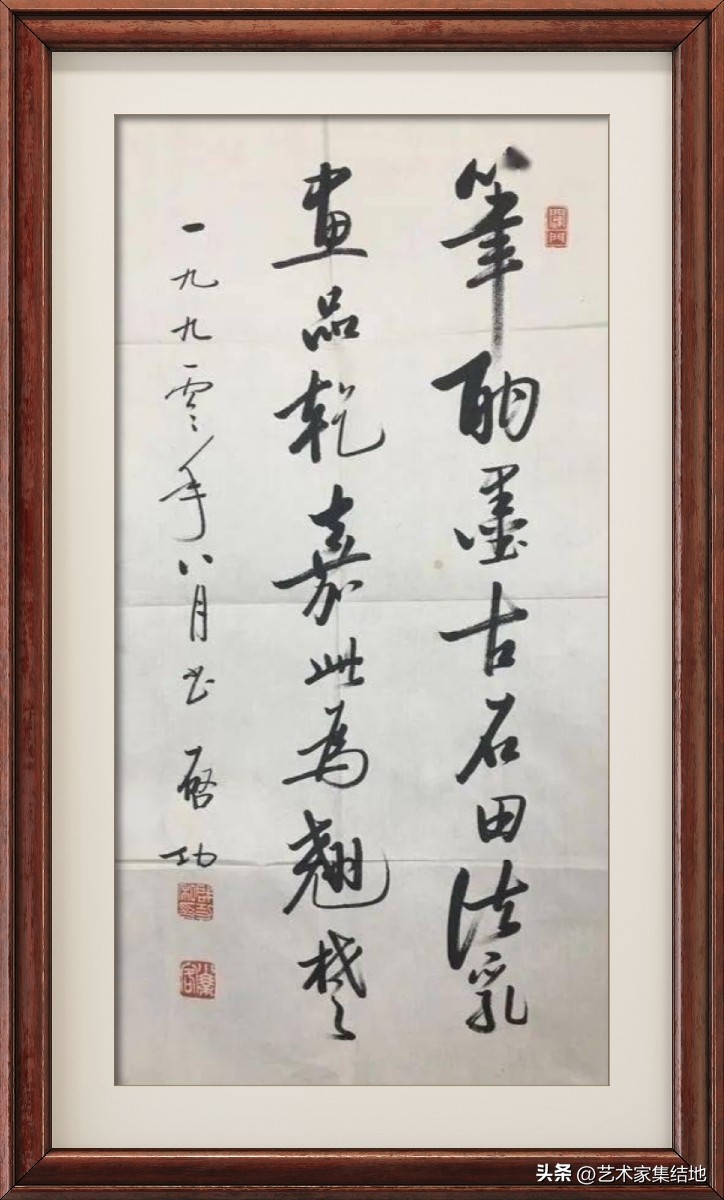 筆酣墨古石田法乳
畫品乾嘉此為翹楚
一九九零年八月書 啓功
头条 @艺术家集结地